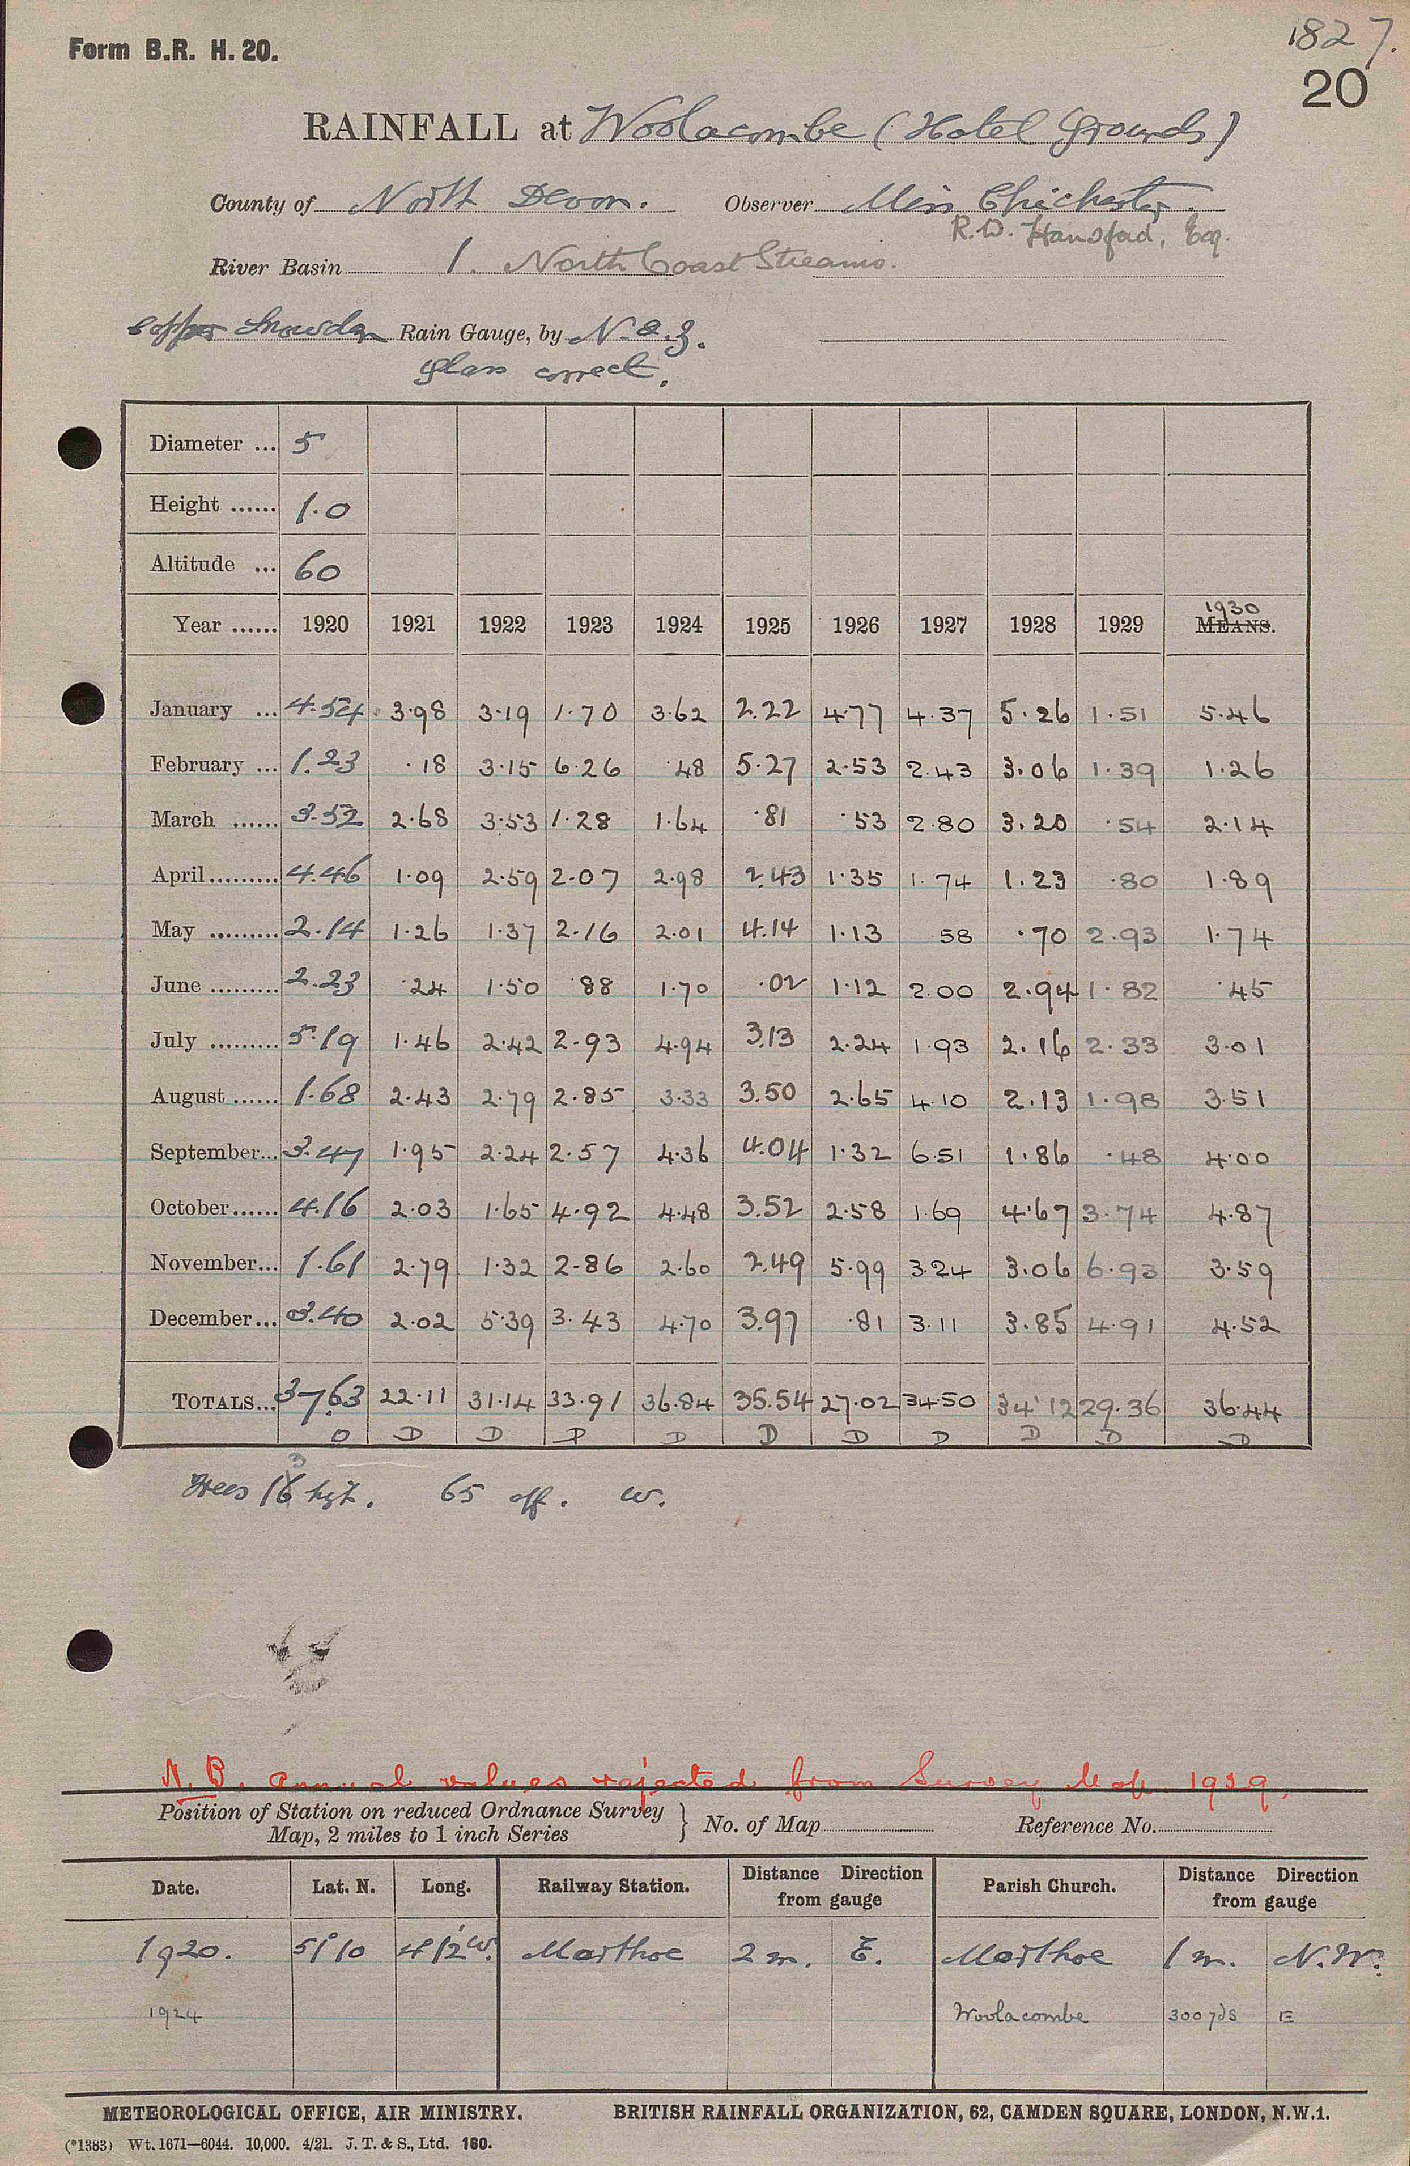 Form B.R. H. 20.
1827.
20
RAINFALL at Woolacombe (Hotel Grounds)
County of North Devon. Observer Miss Chichester.
R.W. Hansford, Esq.
River Basin 1. North Coast Streams.
copper Snowdon Rain Gauge, by N. & Z.
glass correct.
Diameter ... 5
Height ...... 1.0
Altitude ... 60
1930
Year ...... 1920 1921 1922 1923 1924 1925 1926 1927 1928 1929 MEANS.
January ... 4.54 3.98 3.19 1.70 3.62 2.22 4.77 4.37 5.26 1.51 5.46
February ... 1.23 .18 3.15 6.26 .48 5.27 2.53 2.43 3.06 1.39 1.26
March ...... 3.52 2.68 3.53 1.28 1.64 .81 .53 2.80 3.20 .54 2.14
April ......... 4.46 1.09 2.59 2.07 2.98 2.43 1.35 1.74 1.23 .80 1.89
May ......... 2.14 1.26 1.37 2.16 2.01 4.14 1.13 58 .70 2.93 1.74
June ......... 2.23 .24 1.50 .88 1.70 .02 1.12 2.00 2.94 1.82 .45
July ......... 5.19 1.46 2.42 2.93 4.94 3.13 2.24 1.93 2.16 2.33 3.01
August ...... 1.68 2.43 2.79 2.85 3.33 3.50 2.65 4.10 2.13 1.98 3.51
September... 3.47 1.95 2.24 2.57 4.36 4.04 1.32 6.51 1.86 .48 4.00
October...... 4.16 2.03 1.65 4.92 4.48 3.52 2.58 1.69 4.67 3.74 4.87
November... 1.61 2.79 1.32 2.86 2.60 2.49 5.99 3.24 3.06 6.93 3.59
December... 3.40 2.02 5.39 3.43 4.70 3.97 .81 3.11 3.85 4.91 4.52
TOTALS... 37.63 22.11 31.14 33.91 36.84 35.54 27.02 34.50 34.12 29.36 36.44
D D D D D D D D D D D
3
Trees 16 hgt. 65 off. W.
N.B. Annual values rejected from Survey Map 1929.
Position of Station on reduced Ordnance Survey
Map, 2 miles to 1 inch Series } No. of Map Reference No.
Date. Lat. N. Long. Railway Station. Distance Direction from gauge Parish Church. Distance Direction from gauge
1920. 51°10 4 12' W. Morthoe 2 m. E. Morthoe 1 m. N.W.
1924 Woolacombe 300 yds E
METEOROLOGICAL OFFICE, AIR MINISTRY. BRITISH RAINFALL ORGANIZATION, 62, CAMDEN SQUARE, LONDON, N.W.1.
(*1383) Wt. 1671—6044. 10,000. 4/21. J. T. & S., Ltd. 160.